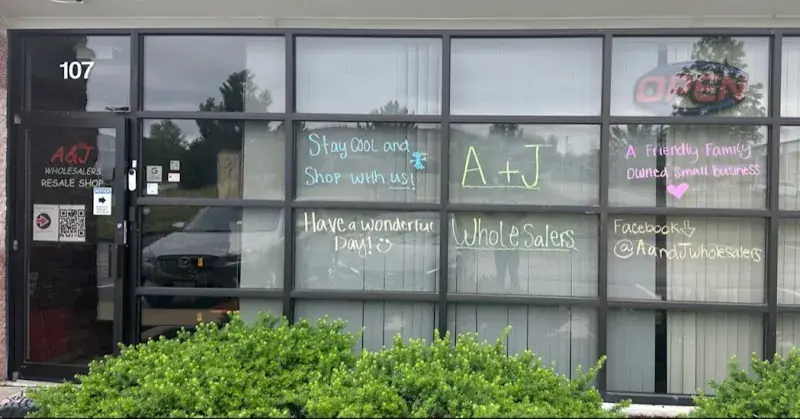 107
A&J
WHOLESALERS
RESALE SHOP
Stay COOL and
Shop with us!
A + J
A Friendly Family
Owned small business
OPEN
Have a wonderful
Day!
Wholesalers
Facebook
@AandJwholesalers